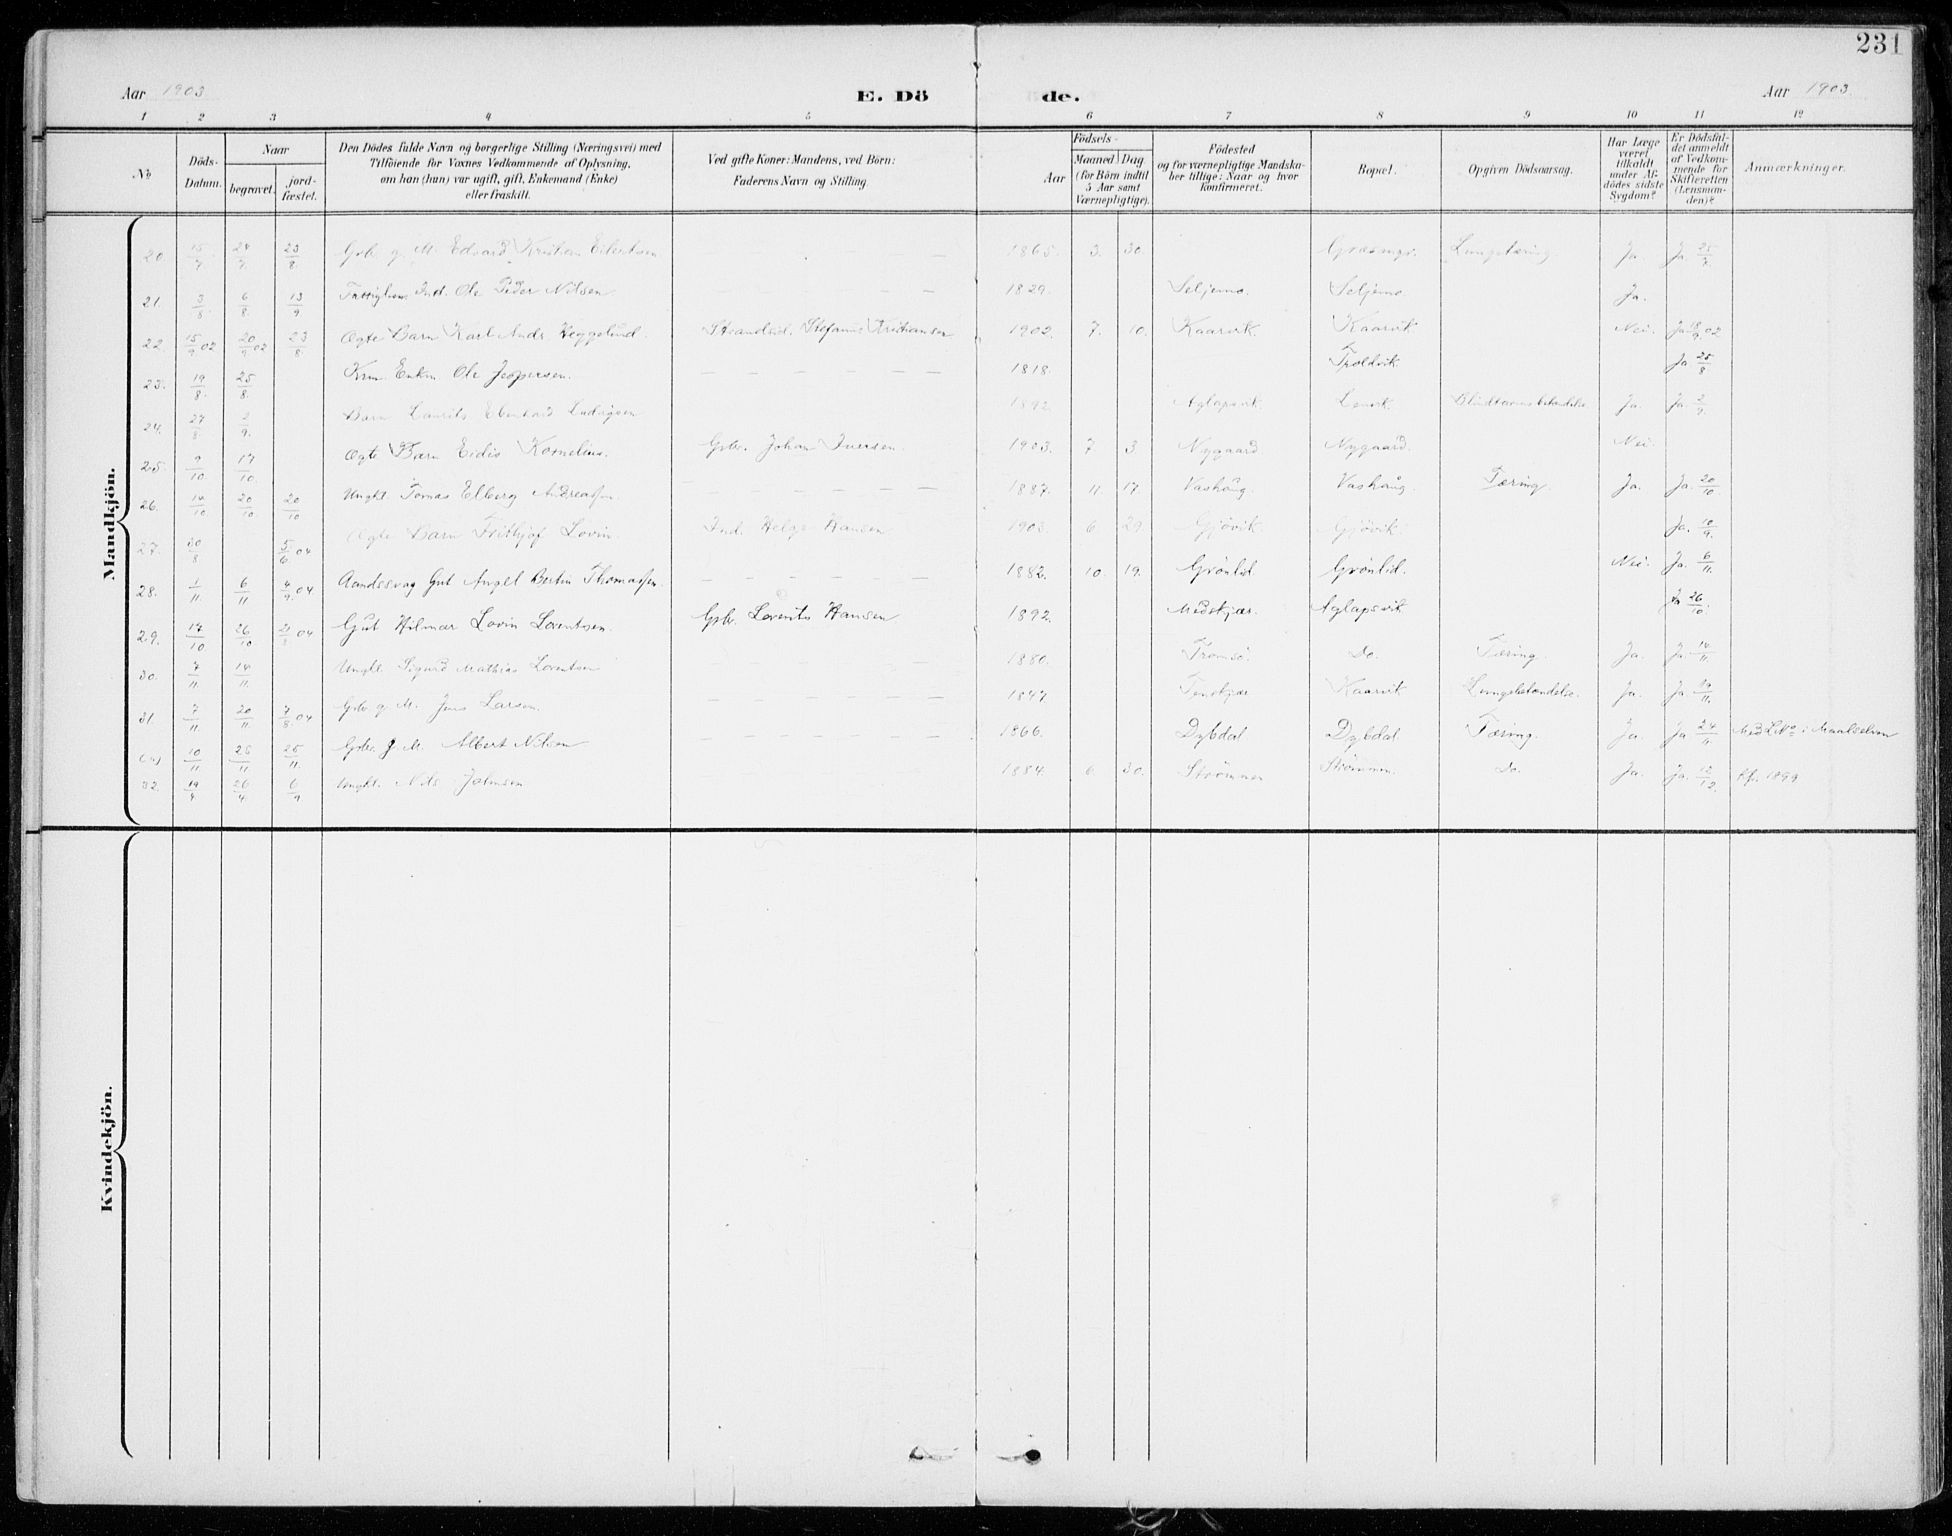 231
Aar 1903
E. Dö
de.
Aar 1903
1 2 3 4 5 6 7 8 9 10 11 12
No
Döds-Datum.
Naar
begravet.
jord-fæstet.
Den Dödes fulde Navn og borgerlige Stilling (Næringsvei) med
Tilföiende for Voxnes Vedkommende af Oplysning,
om han (hun) var ugift, gift, Enkemand (Enke)
eller fraskilt.
Ved gifte Koner: Mandens, ved Börn:
Faderens Navn og Stilling.
Födsels-
Aar
Maaned Dag.
(for Börn indtil
5 Aar samt
Værnepligtige).
Födested
og for værnepligtige Mandska-
ber tillige: Naar og hvor
konfirmeret.
Bopæl.
Opgiven Dödsaarsag.
Har Læge
været
tilkaldt
under Af-
dödes sidste
Sygdom?
Er Dödsfal-
det anmeldt
af Vedkom-
mende for
Skifteretten
(Lensman-
den)?
Anmærkninger.
Mandkjön.
20. 15/7 24/7 23/8 Gbr. g. M. Edvard Kristian Eilertsen — 1865. 3. 30. Græsmyr. Lungetæring Ja Ja 25/7
21. 3/8 6/8 13/9 Fattiglem Ind. Ole Peder Nilsen — 1829. Seljemo. Seljemo Ja.
22. 15/9 02 20/9 02 23/8 Ægte Barn Karl Andr. Heggelund. Strandsid. Stefanus Kristiansen 1902. 7. 10. Kaarvik Kaarvik Nei. Ja 18/9 02
23. 19/8 25/8 Enkm Ole Jespersen. — 1818. Troldvik Ja 25/8
24. 27/8 2/9 Barn Laurits Ebenhard Ludvigsen 1892 Aglapsvik. Lenvik Blindtarmsbetændelse. Ja. Ja 2/9
25. 9/10 17/10 Ægte Barn Eidis Kornelius. Gbr. Johan Iversen 1903. 7 3 Nygaard Nygaard. Nei.
26. 14/10 20/10 20/10 Ungkl. Tomas Elberg Andreassen. — 1887. 11. 17. Vashaug. Vashaug. Tæring. Ja. Ja. 20/10
27. 30/8 5/6 04 Ægte Barn Fridthjof Lovin. Ind. Helge Hansen 1903. 6. 29 Gjövik Gjövik. Ja. 10/9
28. 1/11 6/11 4/9 04 Aandssvag Gut Angel Bertin Thomassen. — 1882. 10. 19. Grönlid. Grönlid. Nei. Ja. 6/11
29. 17/10 26/10 04 Gut Hilmar Lovin Lorentsen. Gbr. Lorents Hansen 1892. Medskjær Aglapsvik Ja 26/10
30. 7/11 14/11 Ungkl. Sigurd Mathias Lorentsen — 1880. Tromsö. Do. Tæring. Ja. Ja. 14/11
31. 7/11 20/11 7/8 04 Gbr. g. M. Jens Larsen. — 1847. Tenskjær Kaarvik Lungebetændelse. Ja. Ja 20/11
10/11 25/11 25/11 Gbr. g. M. Albert Nilsen — 1866. Dybdal Dybdal Tæring. Ja. Ja 24/11 Med i Maalselven
32. 19/4 26/4 6/9 Ungkl. Nils Johnsen 1884. 6. 30. Strömmen Strömmen. Do. Ja. Ja. 12/12 Kf. 1899
Kvindekjön.